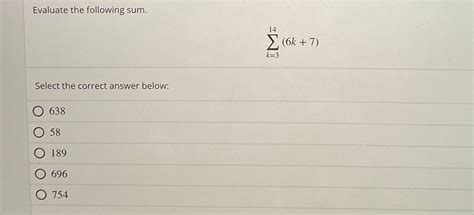 Evaluate the following sum.
14
∑ (6k + 7)
k=3
Select the correct answer below:
638
58
189
696
754